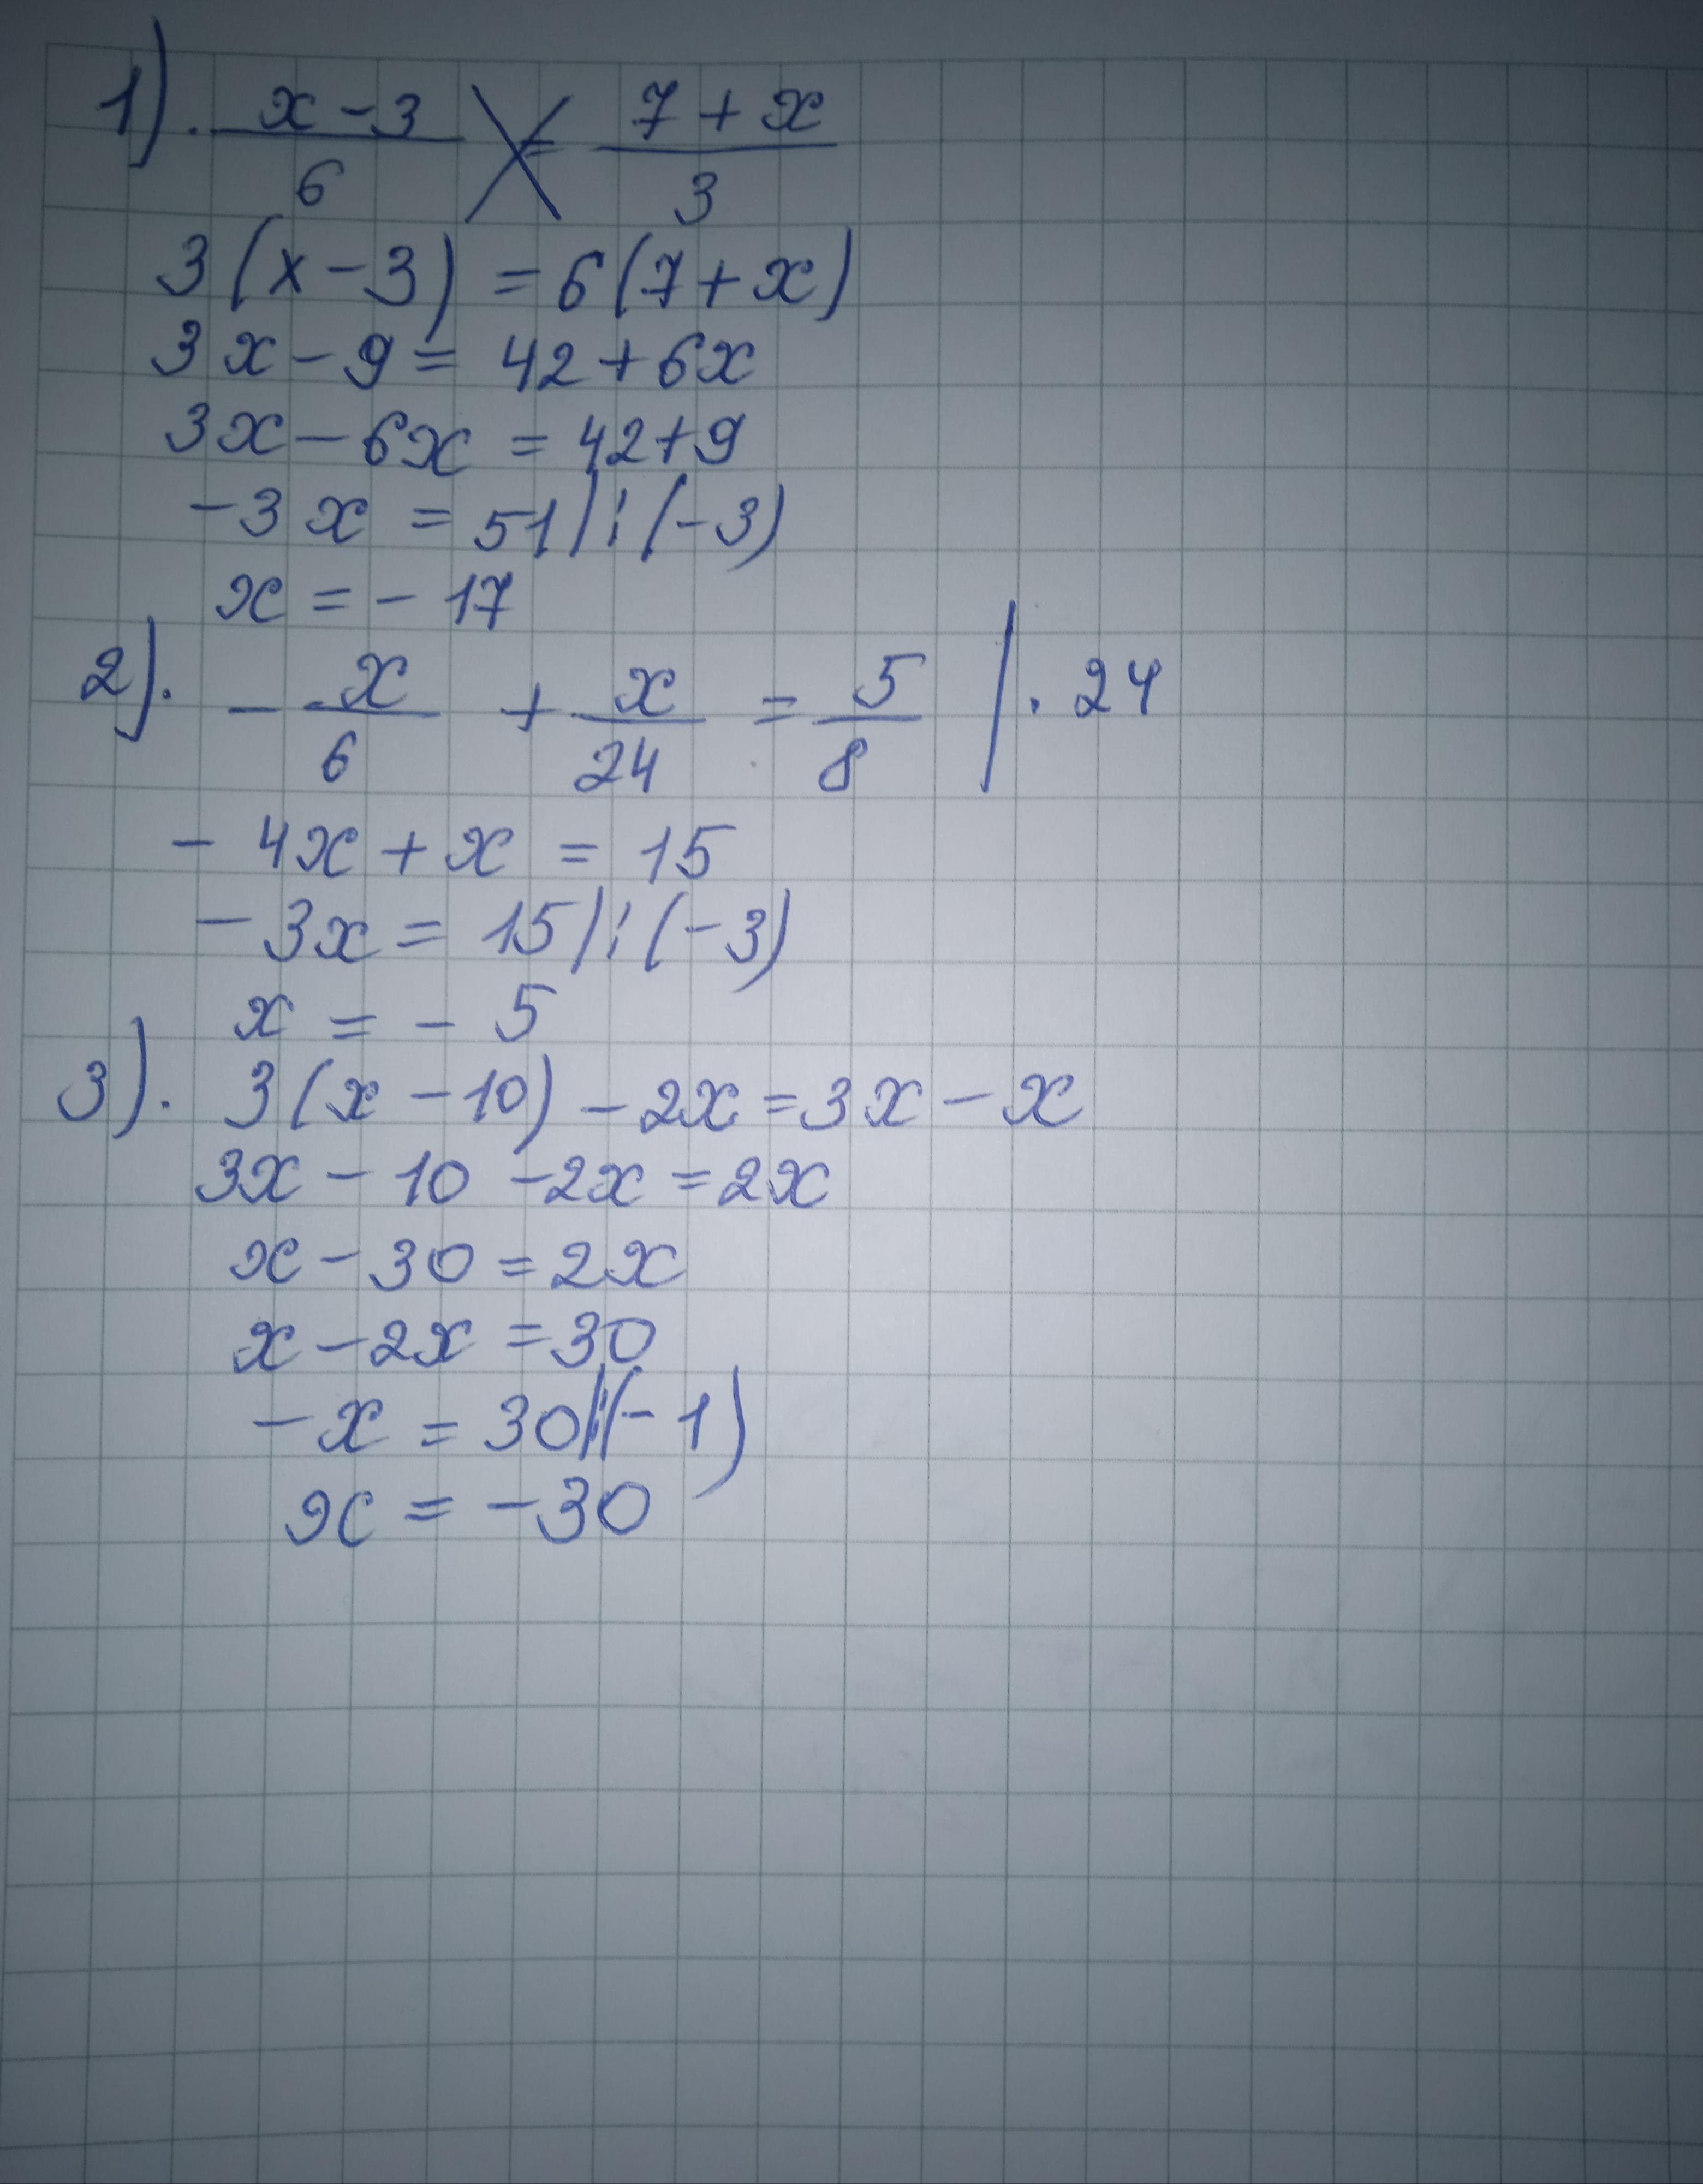 1). x-3/6 = 7+x/3
3(x-3) = 6(7+x)
3x-9 = 42+6x
3x-6x = 42+9
-3x = 51|:(-3)
x = -17
2). -x/6 + x/24 = 5/8 |·24
-4x+x = 15
-3x = 15|:(-3)
x = -5
3). 3(x-10)-2x=3x-x
3x-10-2x=2x
x-30=2x
x-2x=30
-x = 30|:(-1)
x = -30